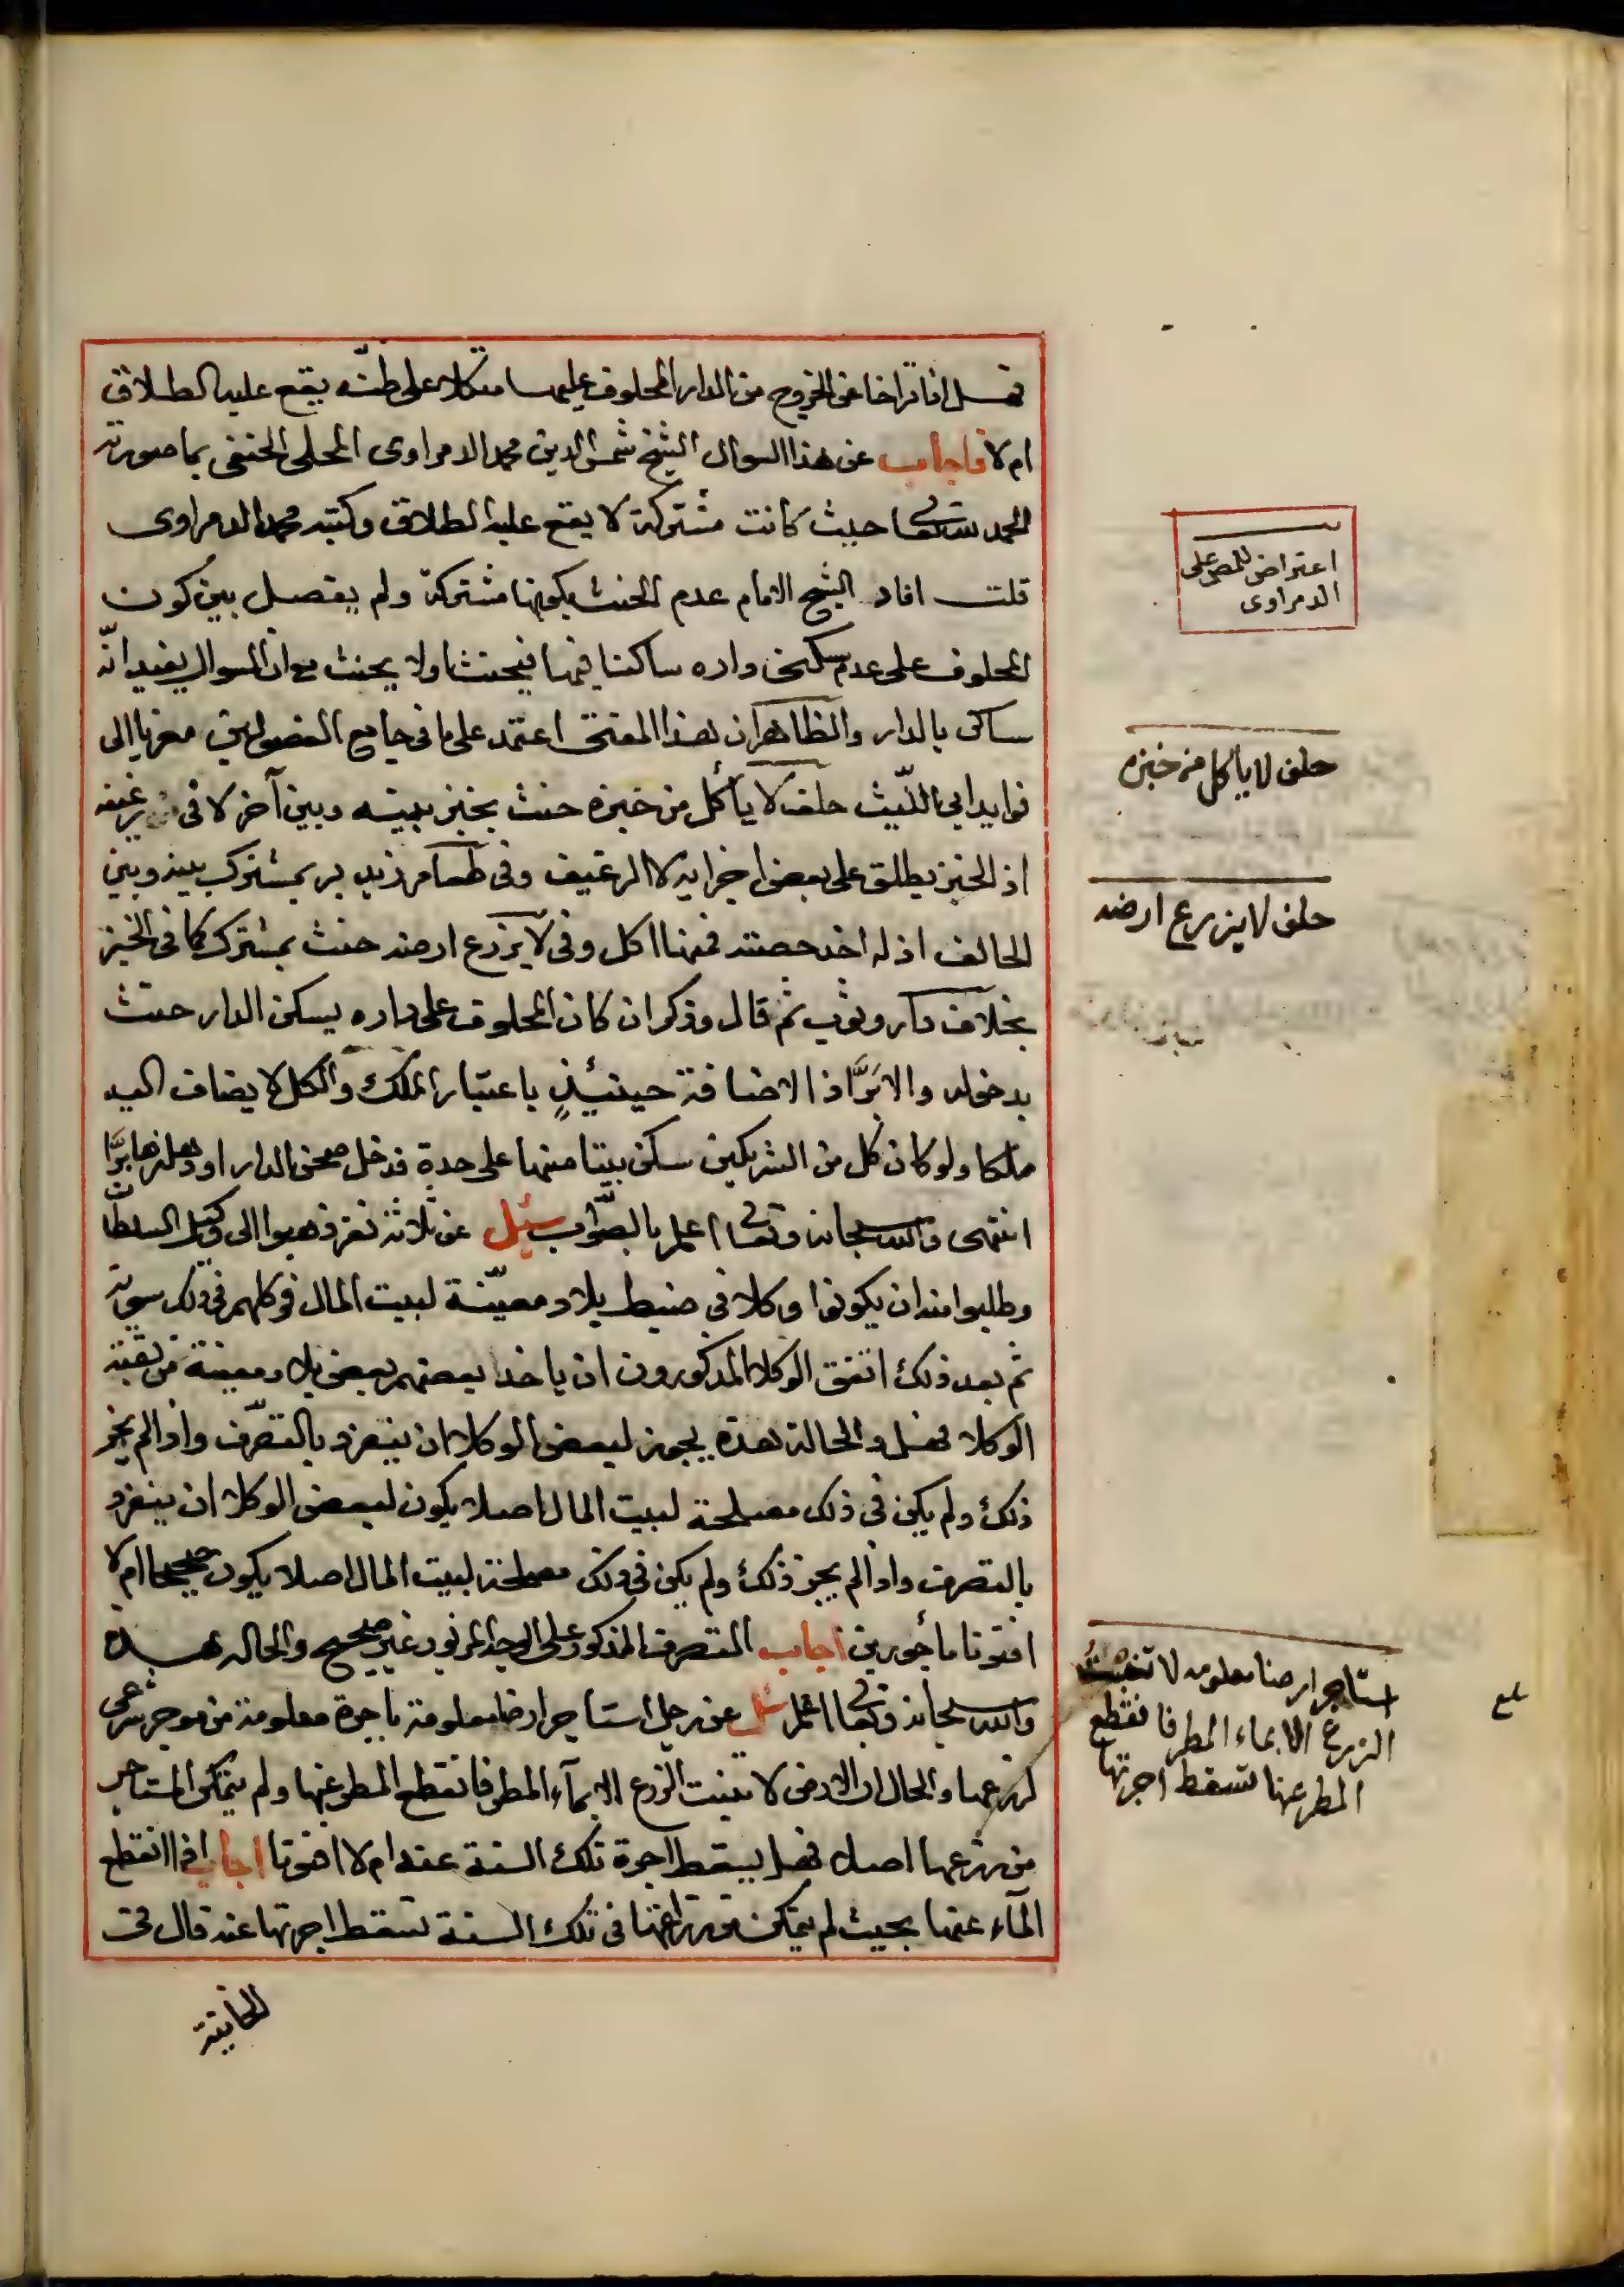 فهل اذا تراخا عن الخروج من الدار المحلوف عليها متكلا على ظنّه يقع عليه الطلاق
ام لا فاجاب عن هذا السوال الشيخ شمس الدين محمد الدمراوى المحلى الحنفى بما صورته
الحمد لله تعالى حيث كانت مشتركة لا يقع عليه الطلاق وكتبه محمد الدمراوى
قلت افاد الشيخ الامام عدم الحنث بكونها مشتركة ولم يفصل بين كون
المحلوف على عدم سكنى داره ساكنا فيها فيحنث اولا يحنث مع ان السوال يفيد انّه
ساكن بالدار والظاهر ان هذا المفتى اعتمد على ما فى جامع الفصولين معزيا الى
فوايد ابى اللّيث حلف لا يأكل من خبزه حنث بخبز بينه وبين آخر لا فى رغيفه
اذ الخبز يطلق على بعض اجزايه لا الرغيف وفى طعام زيد بر بمشترك بينه وبين
الحالف اذ له اخذ حصته فمنها اكل وفى لا يزرع ارضه حنث بمشترك كما فى الخبز
بخلاف دار وثوب ثم قال وذكر ان كان المحلوف على داره يسكن الدار حنث
بدخوله والا برَّ اذ الاضافة حينئذٍ باعتبار الملك والكل لا يضاف اليه
ملكا ولو كان كل من الشريكين سكن بيتا منها على حدة فدخل صحن الدار او دهليزها برَّا
انتهى والله سبحانه وتعالى اعلم بالصّواب سئل عن ثلاثة نفر ذهبوا الى وكيل السلطان
وطلبوا منه ان يكونوا وكلا فى ضبط بلاد معيّنة لبيت المال فوكلهم فى ذلك سوية
ثم بعد ذلك اتفق الوكلا المذكورون ان ياخذ بعضهم بعض بلاد معينة من بقية
الوكلا فهل والحالة هذه يجوز لبعض الوكلا ان ينفرد بالتصرّف واذا لم يجز
ذلك ولم يكن فى ذلك مصلحة لبيت المال اصلا يكون لبعض الوكلا ان ينفرد
بالتصرف واذا لم يجز ذلك ولم يكن فى ذلك مصلحة لبيت المال اصلا يكون صحيحا ام لا
افتونا مأجورين اجاب التصرف المذكور على الوجه المزبور غير صحيح والحاله هذه
والله سبحانه وتعالى اعلم سئل عن رجل استاجر ارضا معلومة باجرة معلومة من موجر شرعى
لزرعها والحال ان الارض لا تنبت الزرع الا بمآء المطر فانقطع المطر عنها ولم يتمكن المستاجر
من زرعها اصلا فهل يسقط اجرة تلك السنة عنه ام لا افتونا اجاب اذا انقطع
المآء عنها بحيث لم يتمكن من زراعتها فى تلك السنة تسقط اجرتها عنه قال فى
الخانية
اعتراض للمص على
الدمراوى
حلف لا ياكل من خبزه
حلف لا يزرع ارضه
استاجر ارضا معلومه لا تنبت
الزرع الا بماء المطر فانقطع
المطر عنها تسقط اجرتها